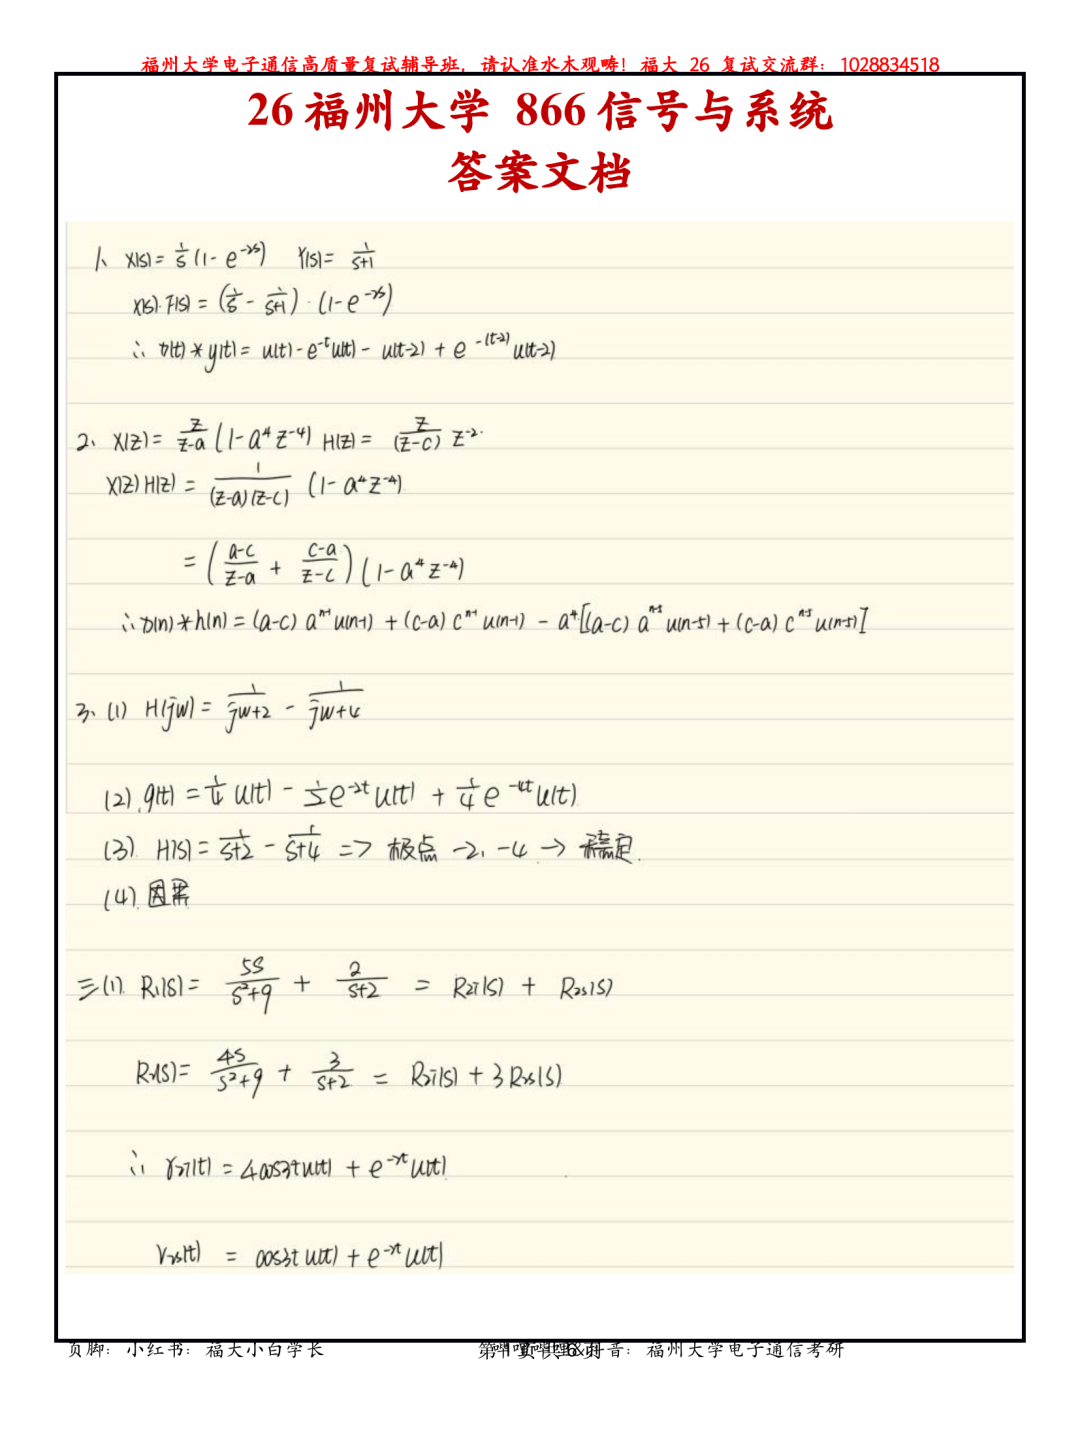 福州大学电子通信高质量复试辅导班，请认准水木观畴！福大 26 复试交流群：1028834518
26 福州大学 866 信号与系统
答案文档
1、 X(s)= 1/s (1- e^-2s) Y(s)= 1/(s+1)
X(s)·F(s) = (1/s - 1/(s+1)) · (1-e^-2s)
∴ x(t)*y(t)= u(t)-e^-t u(t) - u(t-2) + e^-(t-2) u(t-2)
2、 X(z)= z/(z-a) (1-a^4 z^-4) H(z)= z/(z-c) z^-2.
X(z)H(z) = 1/((z-a)(z-c)) (1-a^4 z^-4)
= ((a-c)/(z-a) + (c-a)/(z-c)) (1-a^4 z^-4)
∴ x(n)*h(n) = (a-c) a^n-1 u(n-1) + (c-a) c^n-1 u(n-1) - a^4[(a-c) a^n-5 u(n-5) + (c-a) c^n-5 u(n-5)]
3、(1) H(jw) = 1/(jw+2) - 1/(jw+4)
(2) g(t) = 1/4 u(t) - 1/2 e^-2t u(t) + 1/4 e^-4t u(t)
(3). H(s) = 1/(s+2) - 1/(s+4) => 极点 -2, -4 → 稳定.
(4). 因果
三(1). R1(s)= 5s/(s²+9) + 2/(s+2) = Rzi(s) + Rzs(s)
R2(s)= 4s/(s²+9) + 3/(s+2) = Rzi(s) + 3Rzs(s)
∴ rzi(t) = 4cos3t u(t) + e^-2t u(t)
rzs(t) = cos3t u(t) + e^-2t u(t)
页脚：小红书：福大小白学长
第 1 页 共 6 页 抖音：福州大学电子通信考研